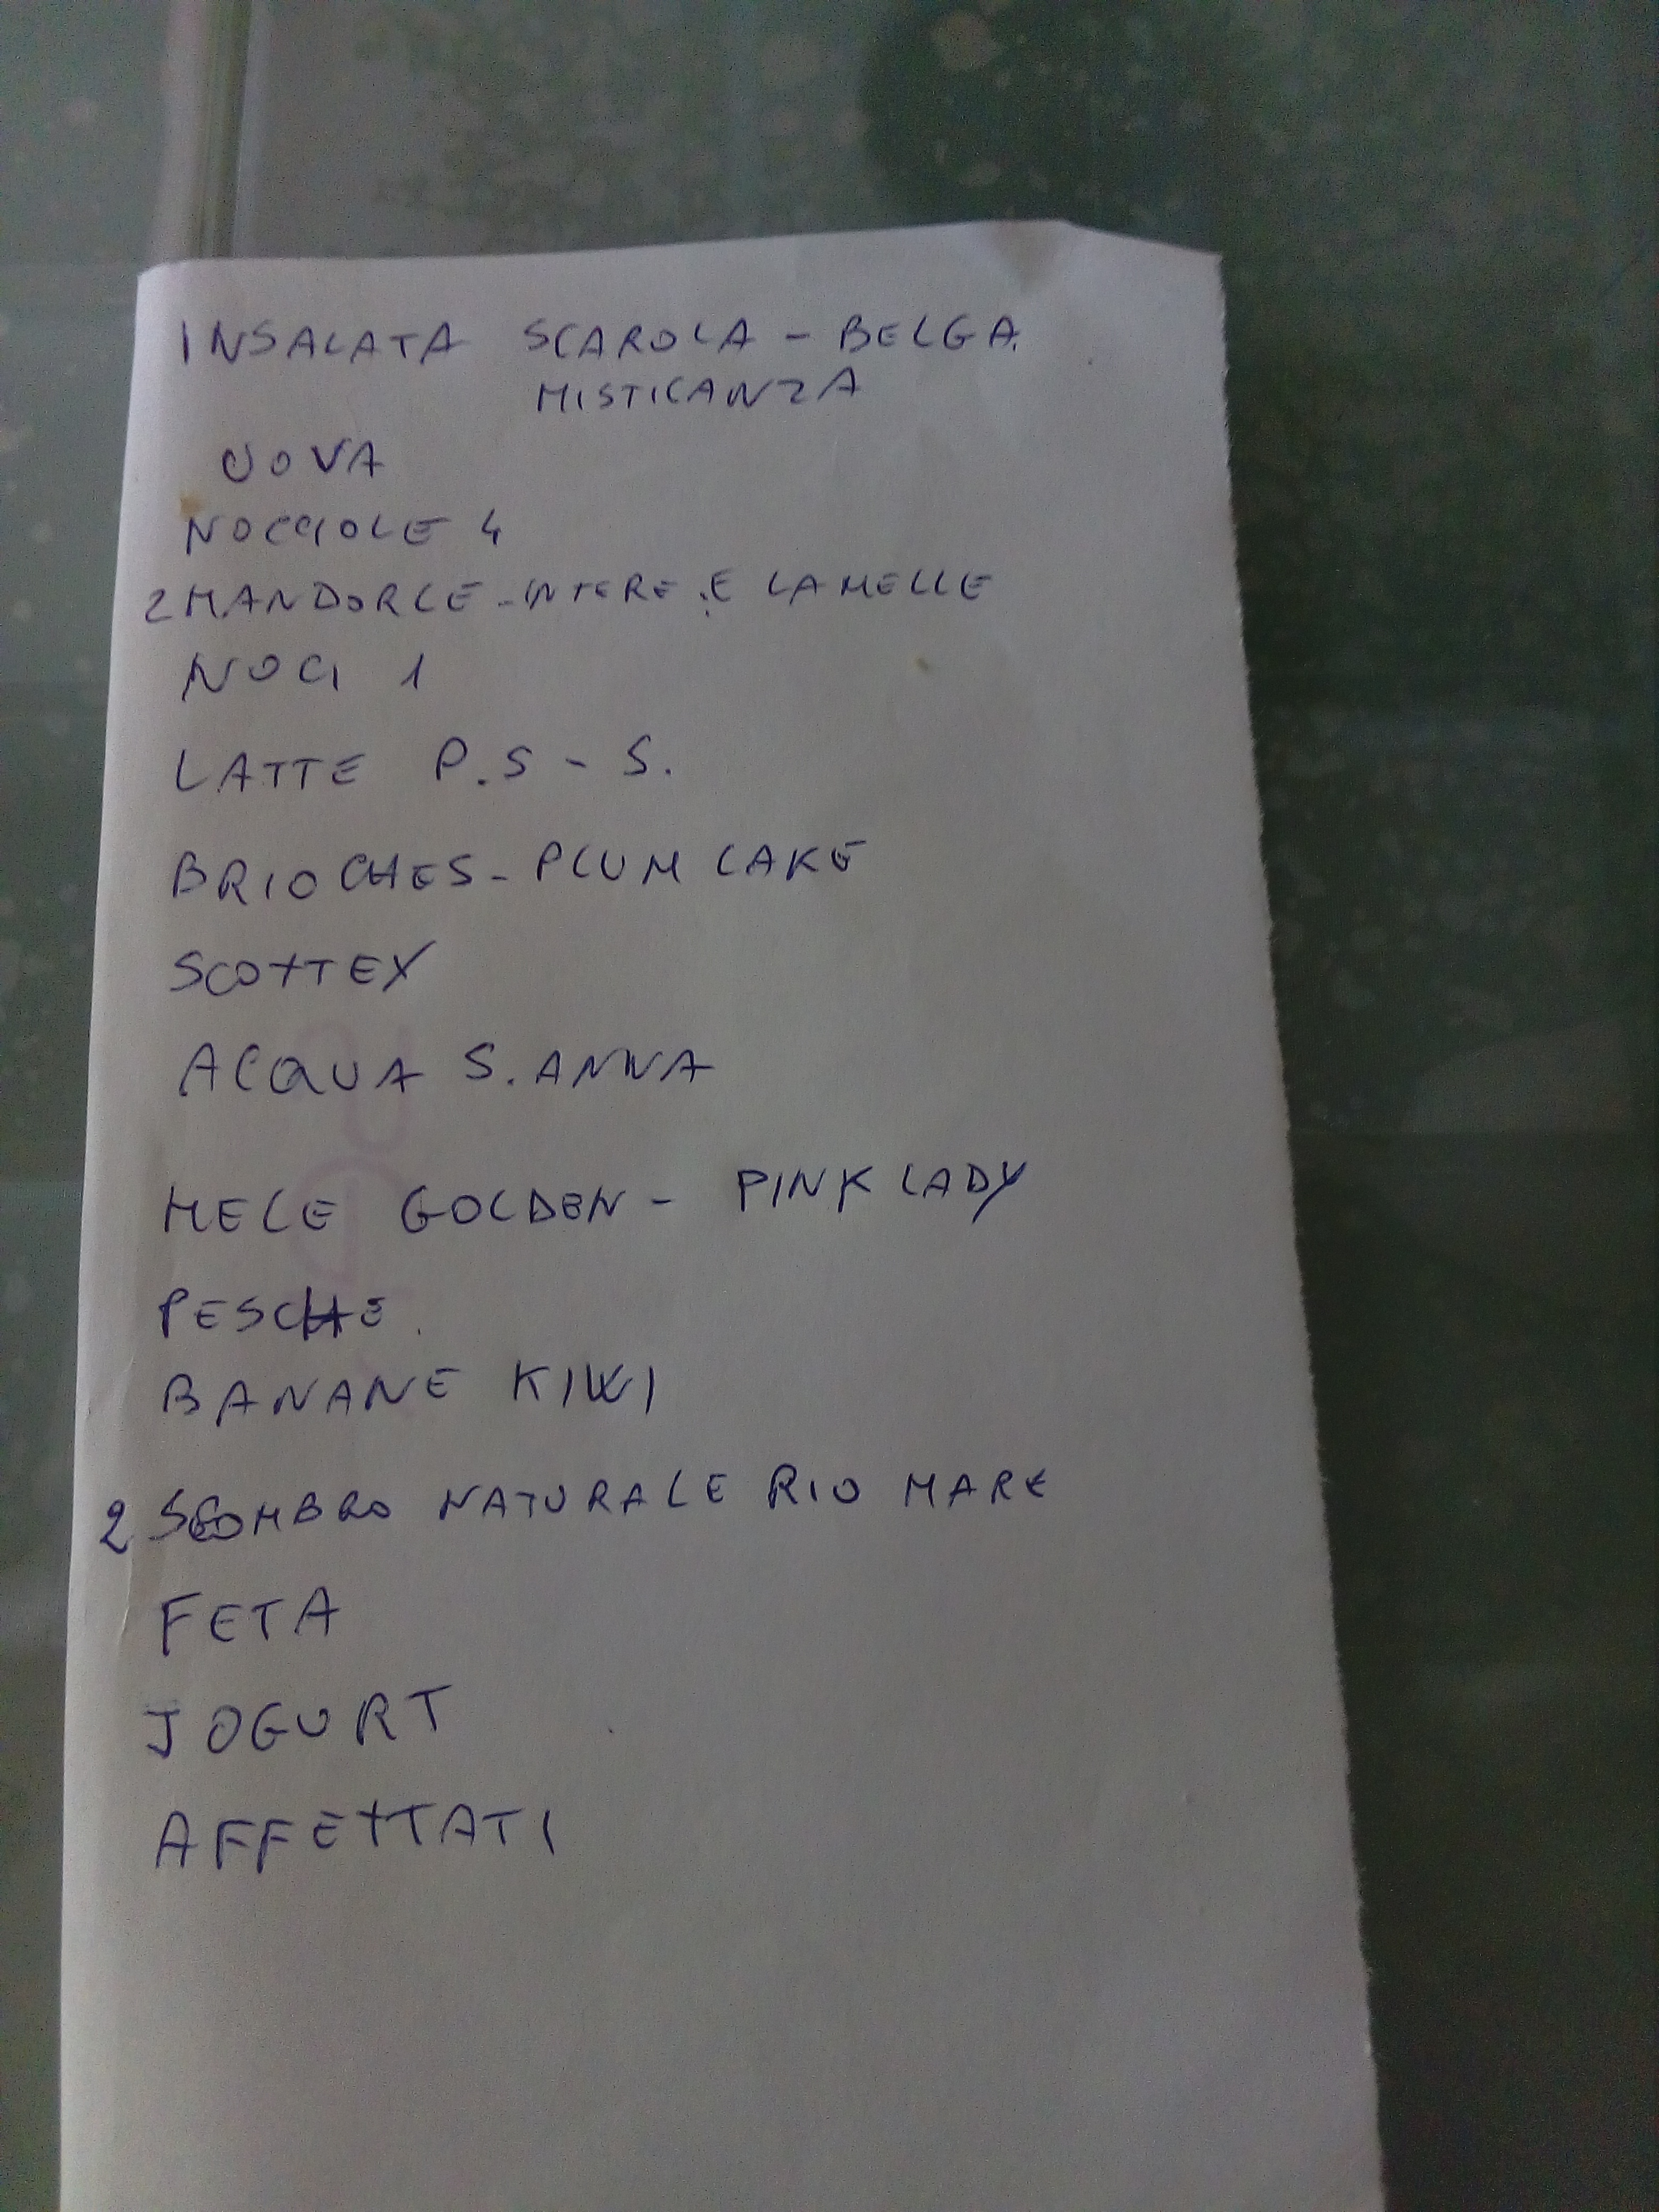 INSALATA SCAROLA - BELGA.
MISTICANZA
UOVA
NOCCIOLE 4
2 MANDORLE - INTERE . E LAMELLE
NOCI 1
LATTE P.S - S.
BRIOCHES - PLUM CAKE
SCOTTEX
ACQUA S. ANNA
MELE GOLDEN - PINK LADY
PESCHE.
BANANE KIWI
2 SGOMBRO NATURALE RIO MARE
FETA
JOGURT
AFFETTATI